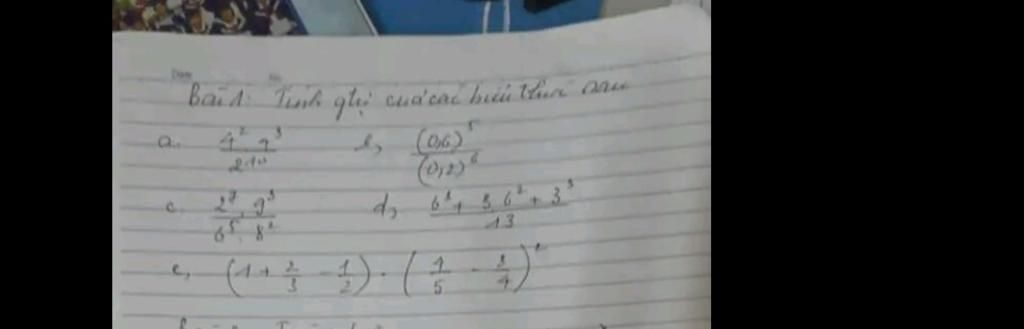 Bài 1: Tính gtrị của các biểu thức sau
a. \frac{4^2 . 9^3}{2^{10}} b, \frac{(0,6)^5}{(0,2)^6}
c. \frac{2^7 . 9^3}{6^5 . 8^2} d, \frac{6^3 + 3.6^2 + 3^3}{13}
e, (1 + \frac{2}{3} - \frac{1}{2}) . (\frac{4}{5} - \frac{3}{4})^2